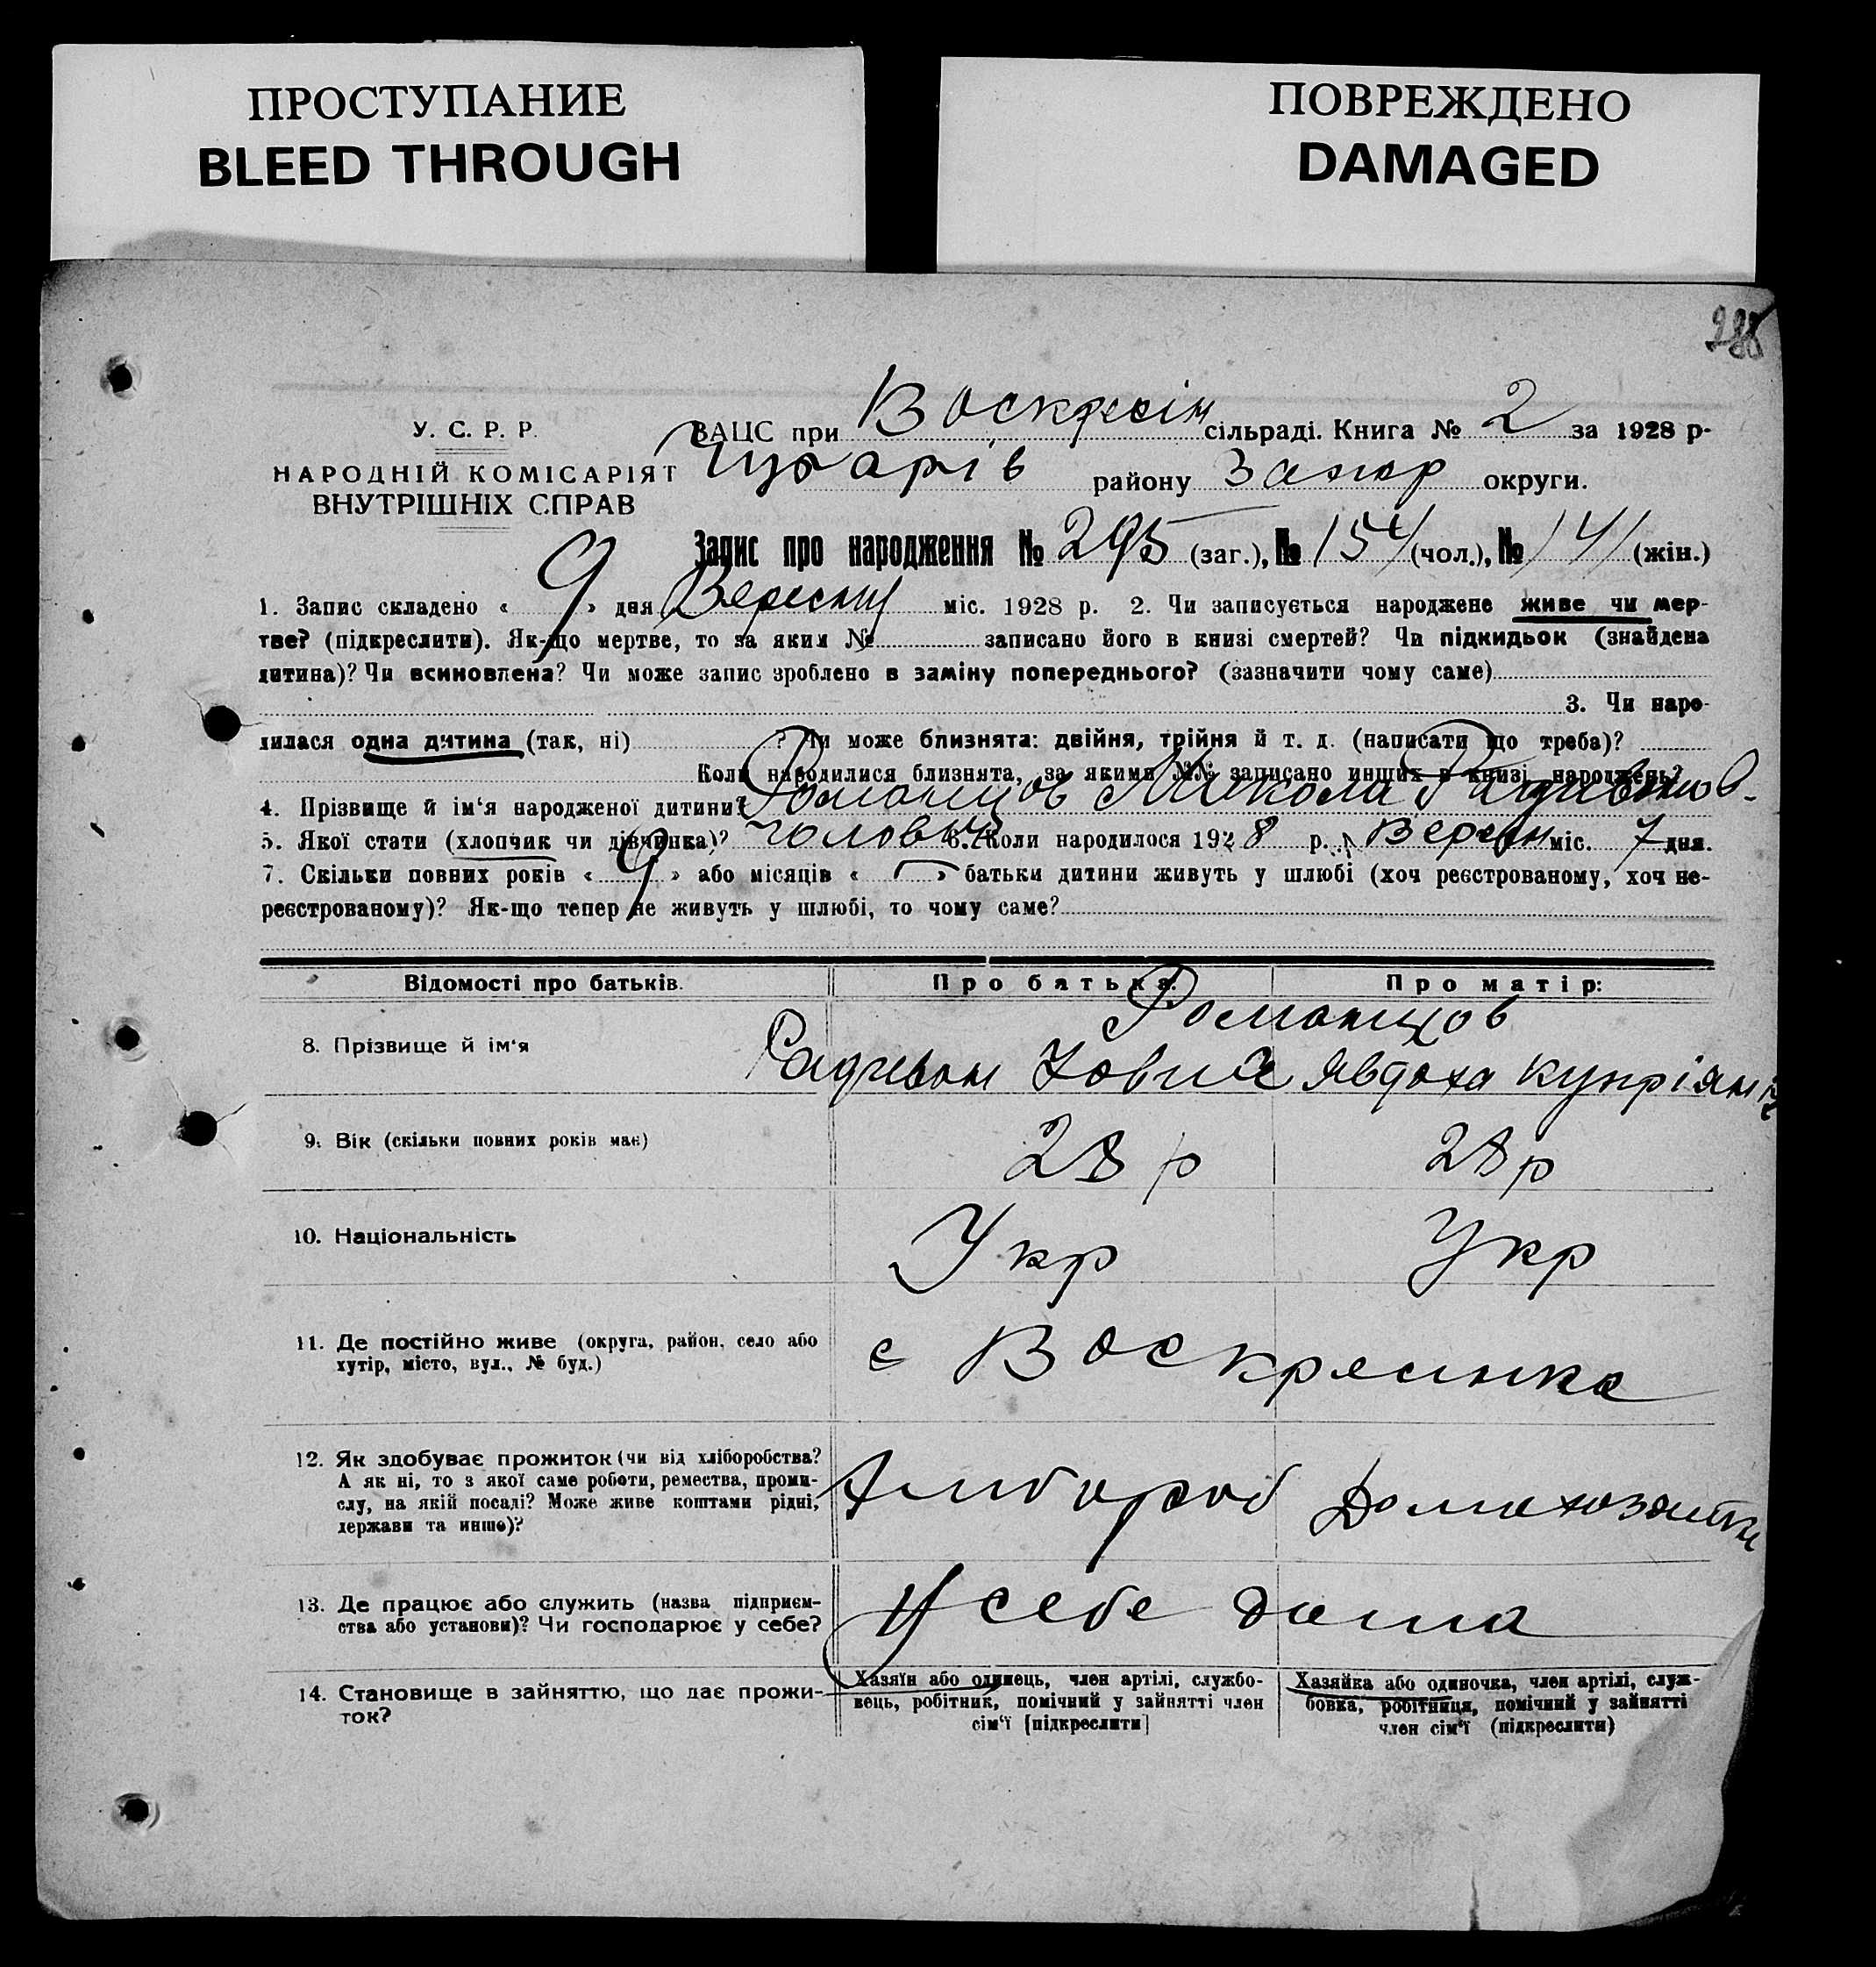 ПРОСТУПАНИЕ
BLEED THROUGH
ПОВРЕЖДЕНО
DAMAGED
У. С. Р. Р.
НАРОДНІЙ КОМІСАРІЯТ
ВНУТРІШНІХ СПРАВ
ЗАЦС при Воскресін сільраді. Книга № 2 за 1928 р-
району Запор округи.
Запис про народження № 295 (заг.), № 154 (чол.), № 141 (жін.)
1. Запис складено « 9 » дня Вересня міс. 1928 р. 2. Чи записується народжене живе чи мер-
тве? (підкреслити). Як-що мертве, то за яким № записано його в книзі смертей? Чи підкидьок (знайдена
дитина)? Чи всиновлена? Чи може запис зроблено в заміну попереднього? (зазначити чому саме)
3. Чи наро-
дилася одна дитина (так, ні) ? Чи може близнята: двійня, трійня й т. д. (написати що треба)?
Коли народилися близнята, за якими №№ записано инших в книзі народжень?
4. Прізвище й ім‘я народженої дитини? Романцов Микола
5. Якої стати (хлопчик чи дівчинка)? 6. Коли народилося 1928 р. Вересн міс. 7 дня.
7. Скільки повних років « 9 » або місяців « — » батьки дитини живуть у шлюбі (хоч реєстрованому, хоч не-
реєстрованому)? Як-що тепер не живуть у шлюбі, то чому саме?
Відомості про батьків. Про батька: Про матір:
Романцов
8. Прізвище й ім‘я Явдоха
9. Вік (скільки повних років має) 28 р 28 р
10. Національність Укр Укр
11. Де постійно живе (округа, район, село або
хутір, місто, вул., № буд.)
с Воскресинка
12. Як здобуває прожиток (чи від хліборобства?
А як ні, то з якої саме роботи, ремества, проми-
слу, на якій посаді? Може живе коштами рідні,
держави та инше)?
Хлібороб
13. Де працює або служить (назва підприєм-
ства або установи)? Чи господарює у себе?
У себе дома
14. Становище в зайняттю, що дає прожи-
ток?
Хазяїн або одинець, член артілі, службо-
вець, робітник, помічний у зайнятті член
сім‘ї [підкреслити]
Хазяйка або одиночка, член артілі, служ-
бовка, робітниця, помічний у зайнятті
член сім‘ї (підкреслити)